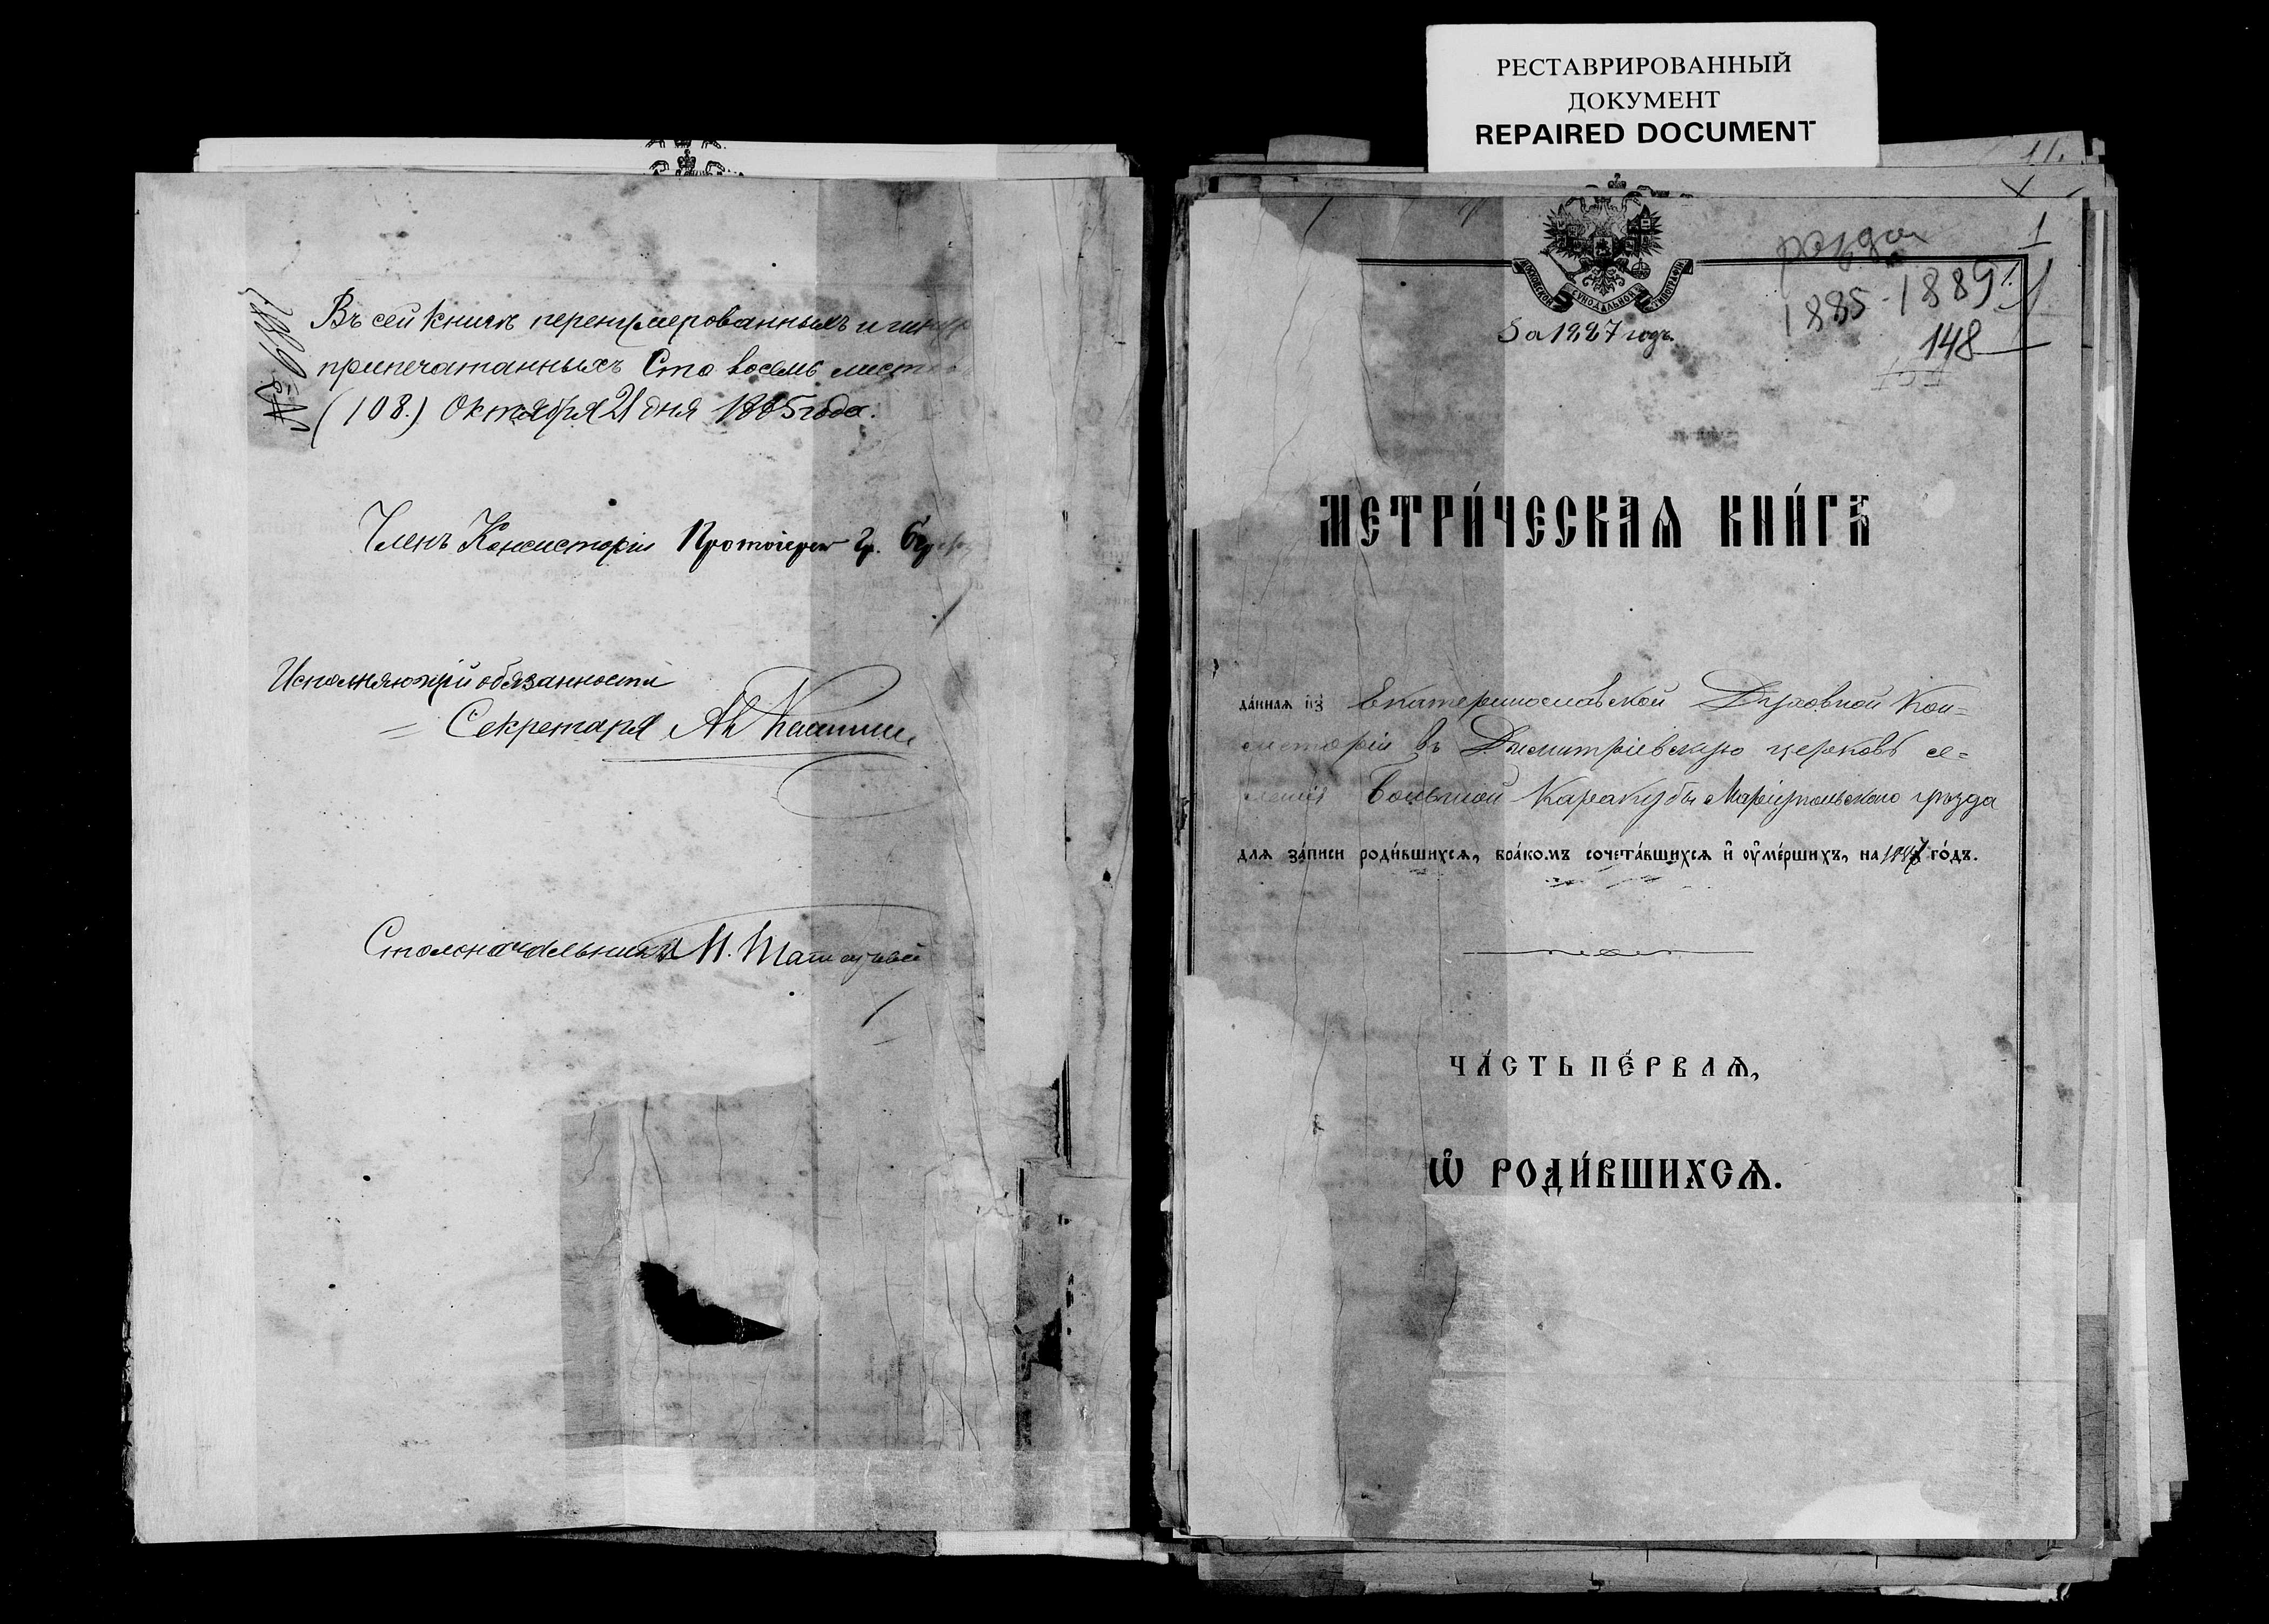 Въ сей книгѣ перенумерованныхъ и
припечатанныхъ Сто восемь
(108.) Октября 21 дня 1885 года.
Членъ Консисторіи Протоіерей Гр.
Исполняющій обязанности
= Секретаря
Столоначальникъ И.
РЕСТАВРИРОВАННЫЙ
ДОКУМЕНТ
REPAIRED DOCUMENT
11.
1
1885-1889
МОСКОВСКОЙ СѴНОДАЛЬНОЙ ТИПОГРАФІИ
За 1887 годъ.
148
МЕТРИ́ЧЕСКАѦ КНИ́ГА
да́ннаѧ и҆з̾ Екатеринославской Духовной Кон=
систоріи въ Димитріевскую церковь се=
ленія Большой Каракубы Маріупольскаго уѣзда
длѧ за́писи роди́вшихсѧ, бра́комъ сочета́вшихсѧ и҆ ᲂу҆ме́ршихъ, на 1887 го́дъ.
ЧА́СТЬ ПЕ́РВАѦ,
Ѡ҆ РОДИ́ВШИХСѦ.